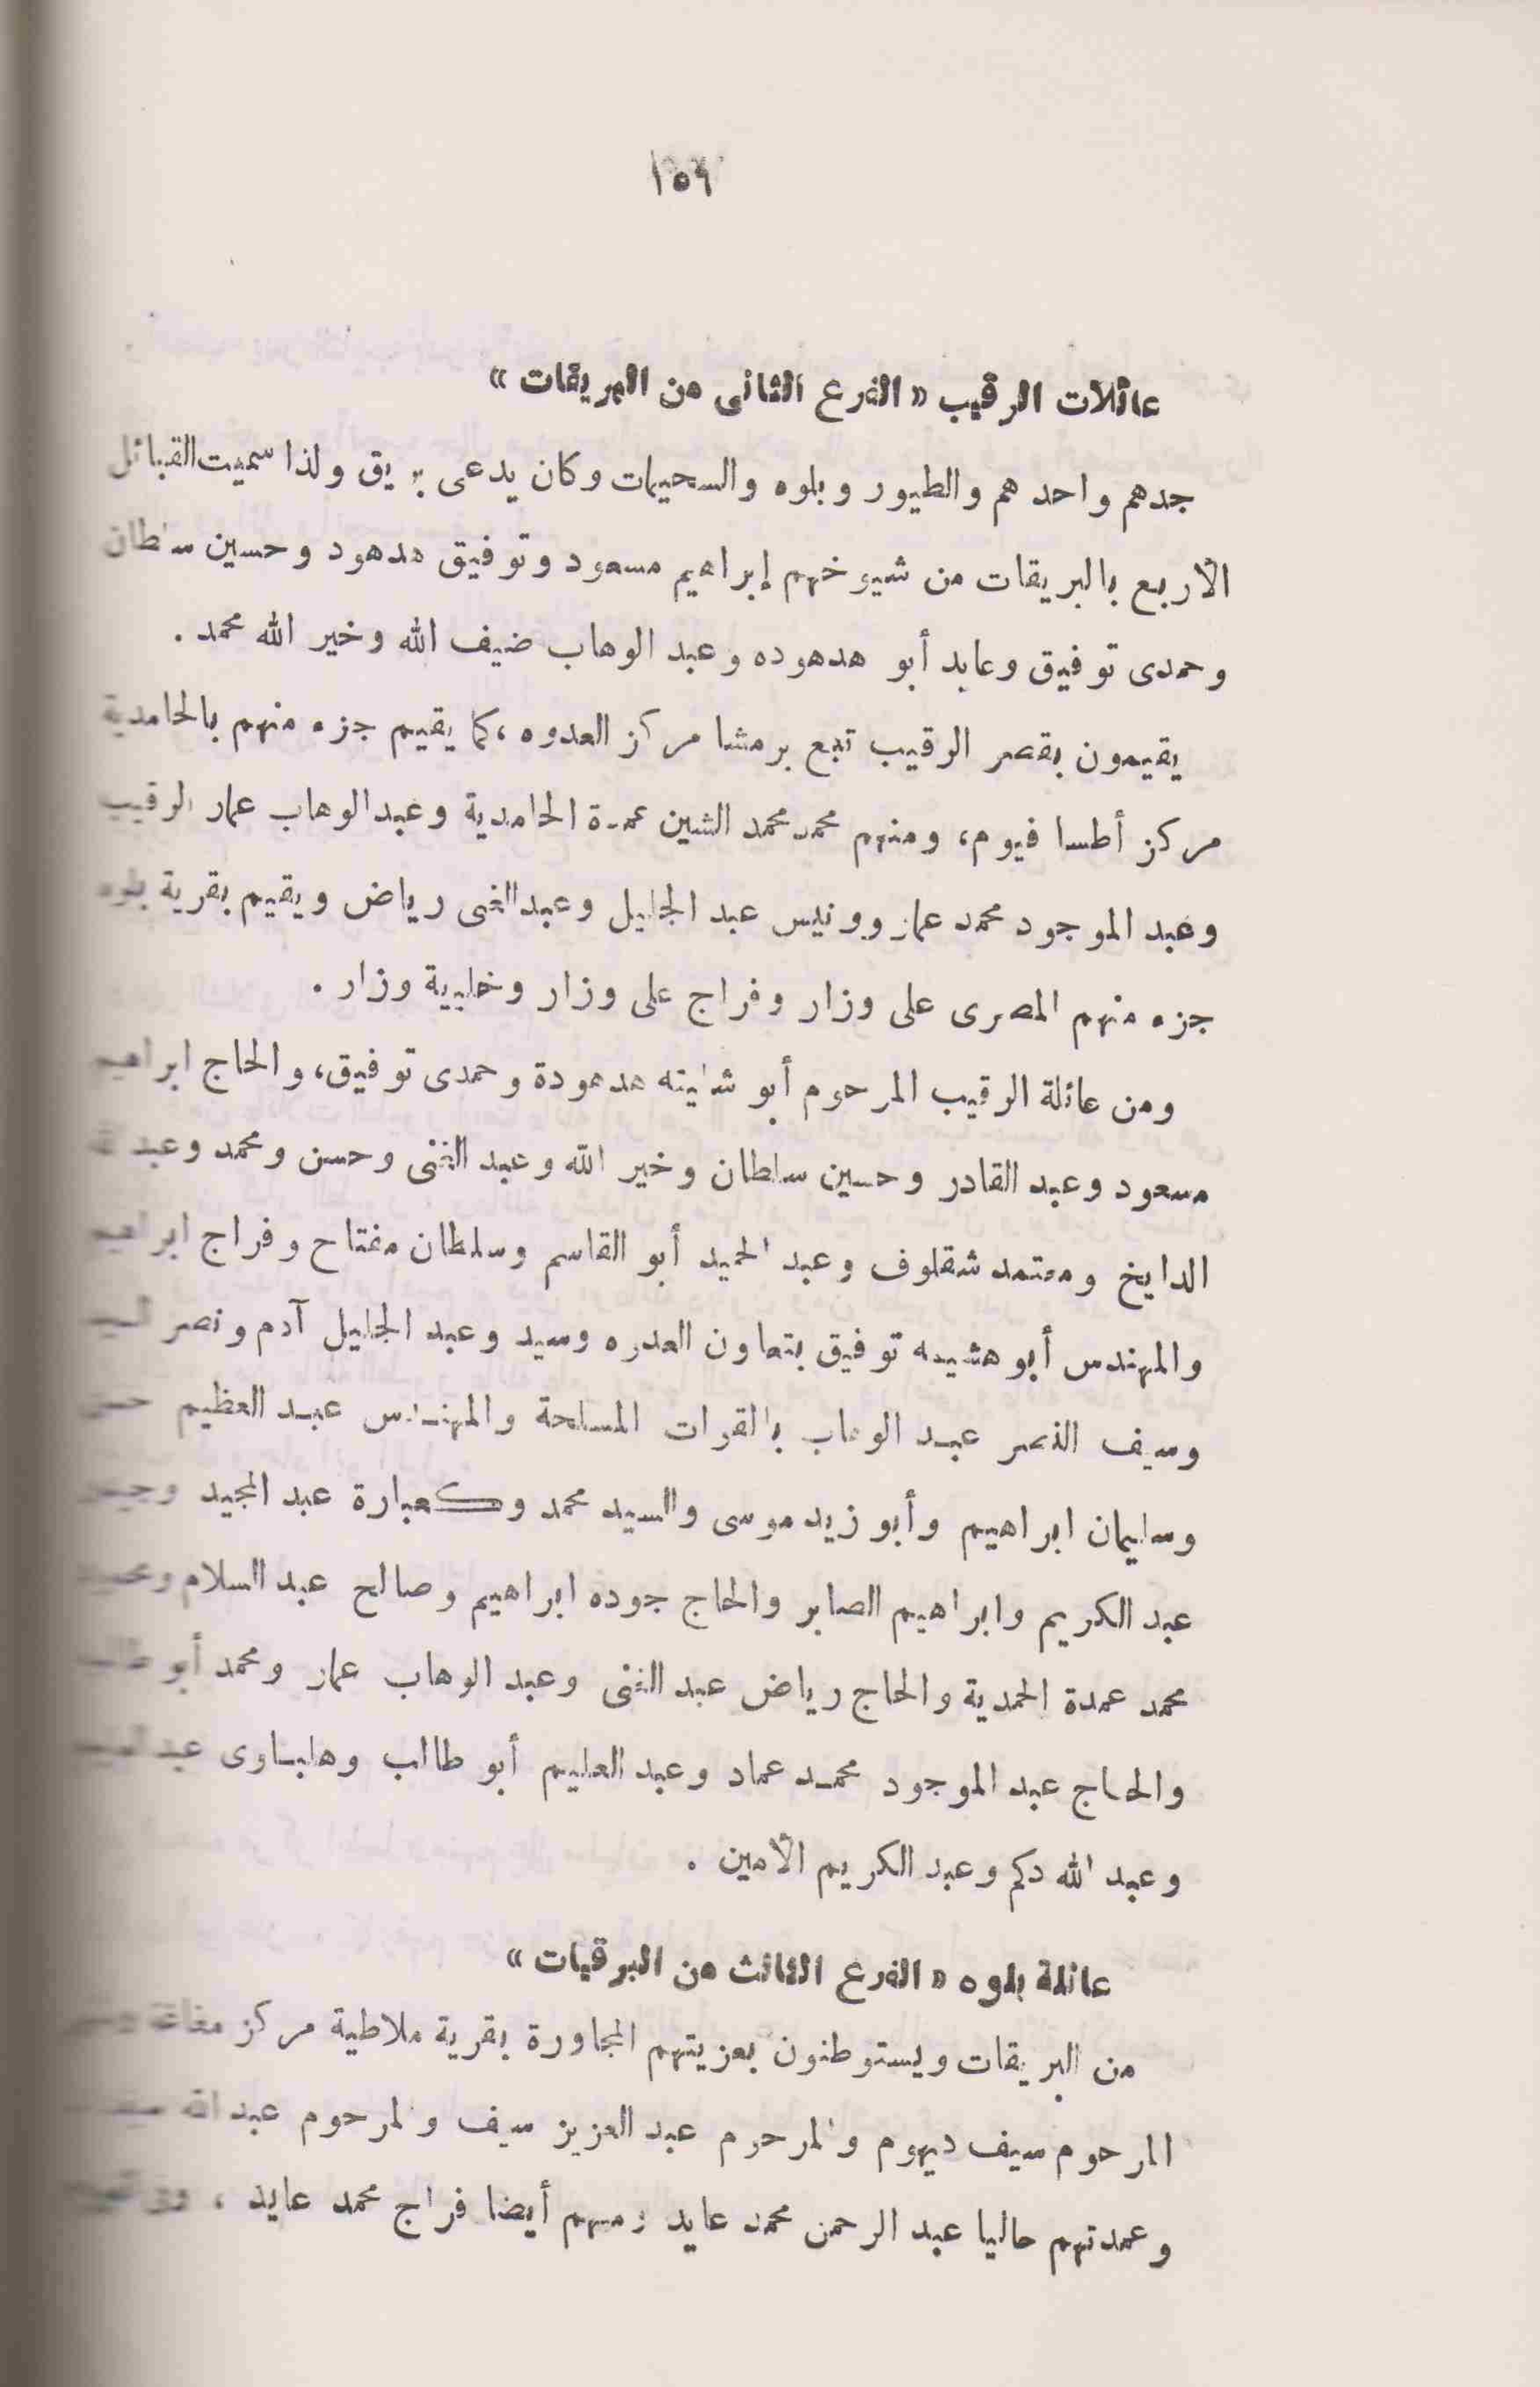 ١٥٦
عائلات الرقيب « الفرع الثانى من البريقات »
جدهم واحد هم والطيور وبلوه والسحيمات وكان يدعى بريق ولذا سميت القبائل
الاربع بالبريقات من شيوخهم إبراهيم مسعود وتوفيق هدهود وحسين سلطان
وحمدى توفيق وعابد أبو هدهوده وعبد الوهاب ضيف الله وخير الله محمد .
يقيمون بقصر الرقيب تبع برمشا مركز العدوه ، كما يقيم جزء منهم بالحامدية
مركز أطسا فيوم ، ومنهم محمد محمد الشين عمدة الحامدية وعبد الوهاب عمار الرقيب
وعبد الموجود محمد عمار وونيس عبد الجليل وعبد الغنى رياض ويقيم بقرية بلوه
جزء منهم المصرى على وزار وفراج على وزار وخليية وزار .
ومن عائلة الرقيب المرحوم أبو شليته هدهودة وحمدى توفيق ، والحاج ابراهيم
مسعود وعبد القادر وحسين سلطان وخير الله وعبد الغنى وحسن ومحمد وعبد الله
الدايخ ومعتمد شقلوف وعبد الحميد أبو القاسم وسلطان مفتاح وفراج ابراهيم
والمهندس أبو هشيمه توفيق بتعاون العدوه وسيد وعبد الجليل آدم ونصر السيد
وسيف النصر عبد الوهاب بالقوات المسلحة والمهندس عبد العظيم
وسليمان ابراهيم وأبو زيد موسى والسيد محمد وكعبارة عبد المجيد
عبد الكريم وابراهيم الصابر والحاج جوده ابراهيم وصالح عبد السلام
محمد عمدة الحمدية والحاج رياض عبد الغنى وعبد الوهاب عمار ومحمد أبو طالب
والحاج عبد الموجود محمد عماد وعبد العليم أبو طالب وهلباوى
وعبد الله دكم وعبد الكريم الأمين .
عائلة بلوه « الفرع الثالث من البرقيات »
من البريقات ويستوطنون بعزيتهم المجاورة بقرية ملاطية مركز مغاغة
المرحوم سيف ديهوم والمرحوم عبد العزيز سيف والمرحوم عبد الله سيف
وعمدتهم حاليا عبد الرحمن محمد عايد ومنهم أيضا فراج محمد عايد ،